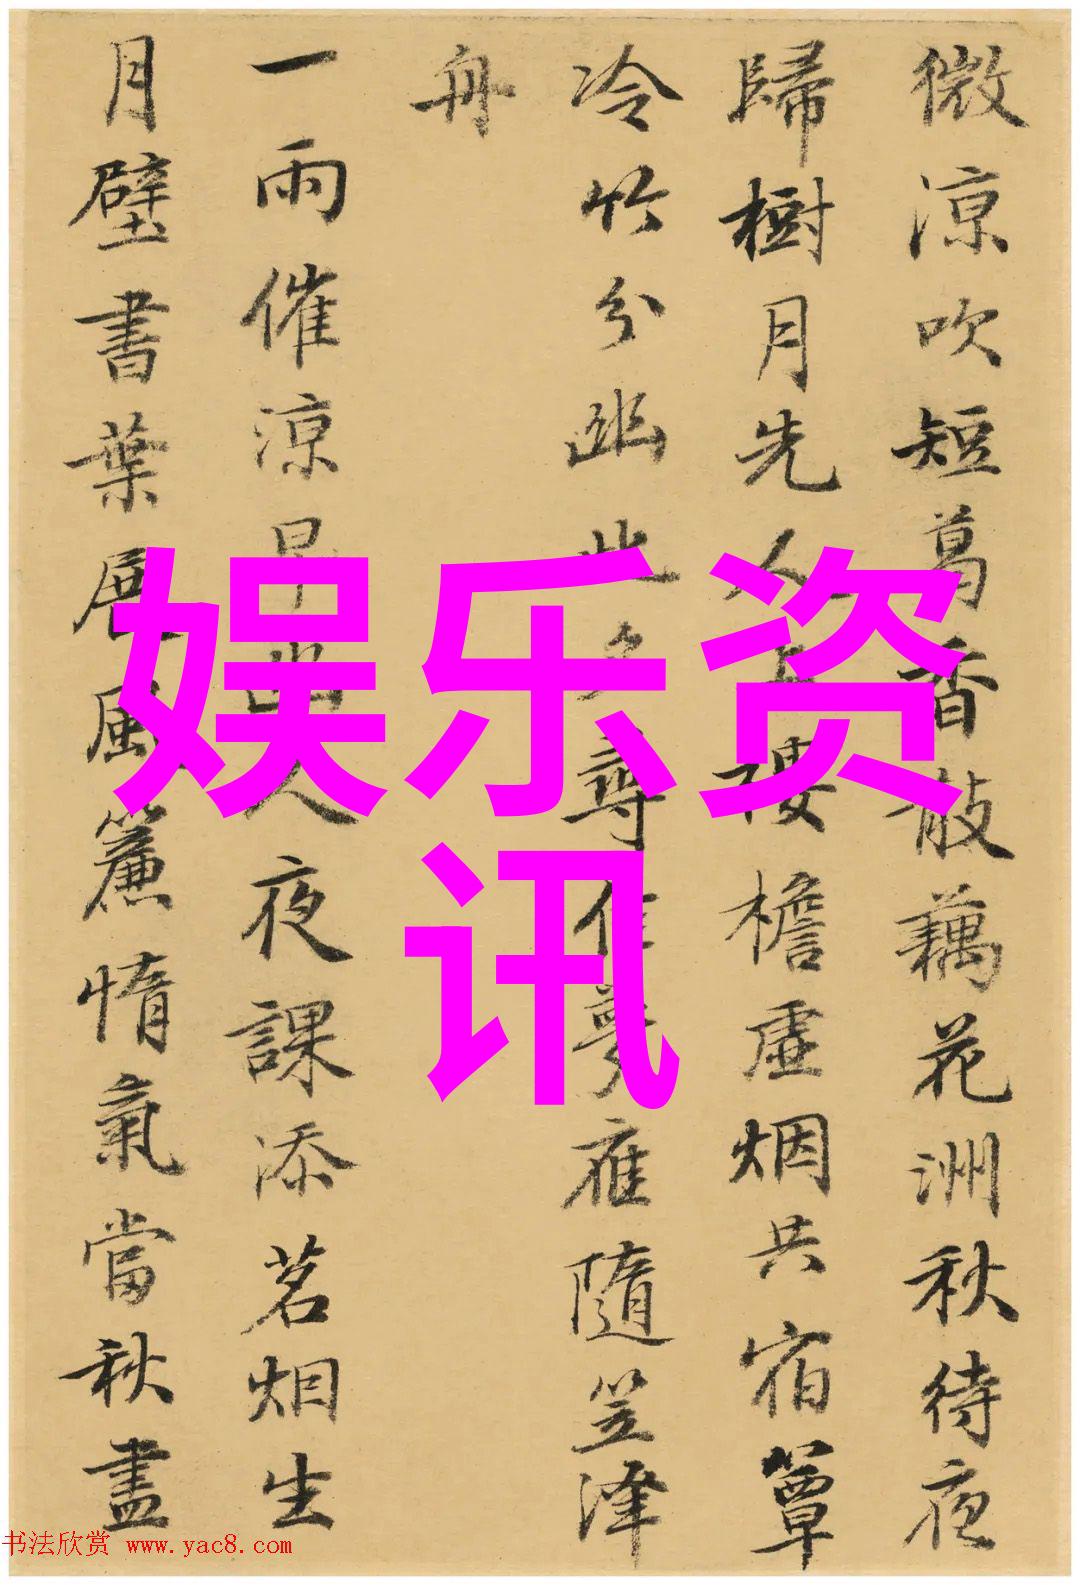 微涼吹短葛香散藕花洲秋待夜
歸樹月先人樓檐虛烟共宿簟
冷竹分幽此尋佳夢雁隨笠澤
舟
一雨催涼早出人夜課添茗烟生
月壁書葉展風簾惰氣當秋盡
娱乐资
讯
书法欣赏 www.yac8.com